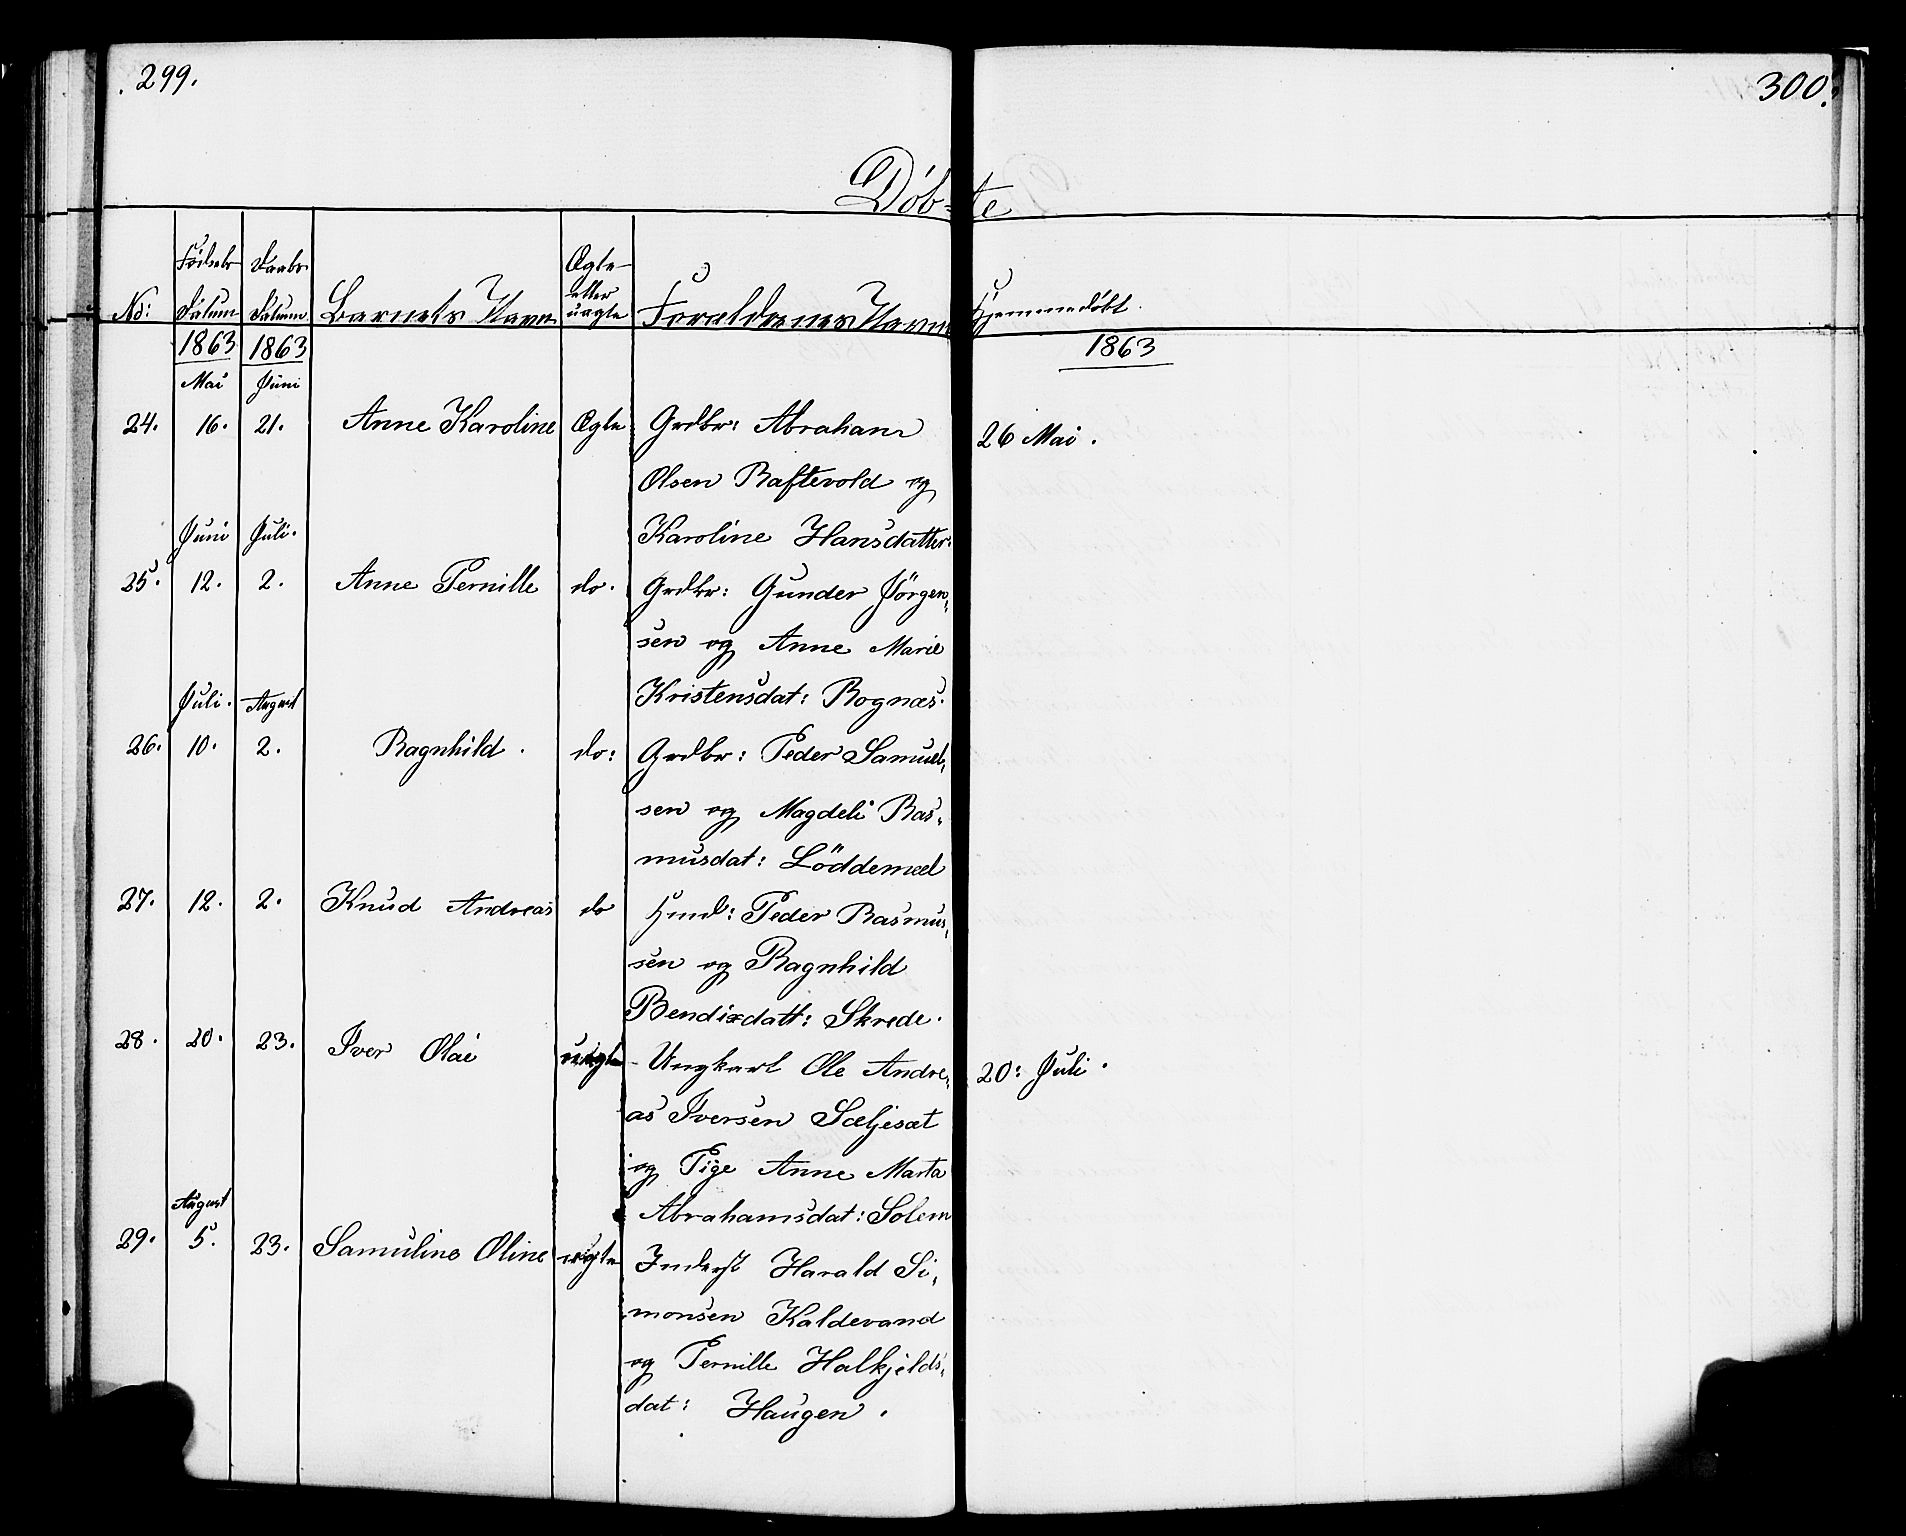 299.
300.
Døb-te
No: Fødsels Datum Daabs Datum Barnets Navn Ægte eller uægte Forældrenes Navne Hjemmedøbt.
1863 1863 1863
Mai Juni
24. 16. 21. Anne Karoline Ægte Grdbr: Abraham 26 Mai.
Olsen Raftevold og
Juni Juli. Karoline Hansdatter.
25. 12. 2. Anne Pernille do. Grdbr: Gunder Jörgen-
sen og Anne Marie
Juli. August Kristensdat: Rognæs.
26. 10. 2. Ragnhild. do: Grdbr: Peder Samuel-
sen og Magdeli Ras-
musdat: Löddemæl
27. 12. 2. Knud Andreas do Hmd: Peder Rasmus-
sen og Ragnhild
Bendixdatt: Skrede.
28. 20. 23. Iver Olai uægte Ungkarl Ole Andre- 20: Juli.
as Iversen Sæljesæt
og Pige Anne Marta
August Abrahamsdat: Solem
29. 5. 23. Samuline Oline uægte Inderst Harald Si-
monsen Kaldevand
og Pernille Halkjelds-
dat: Haugen.